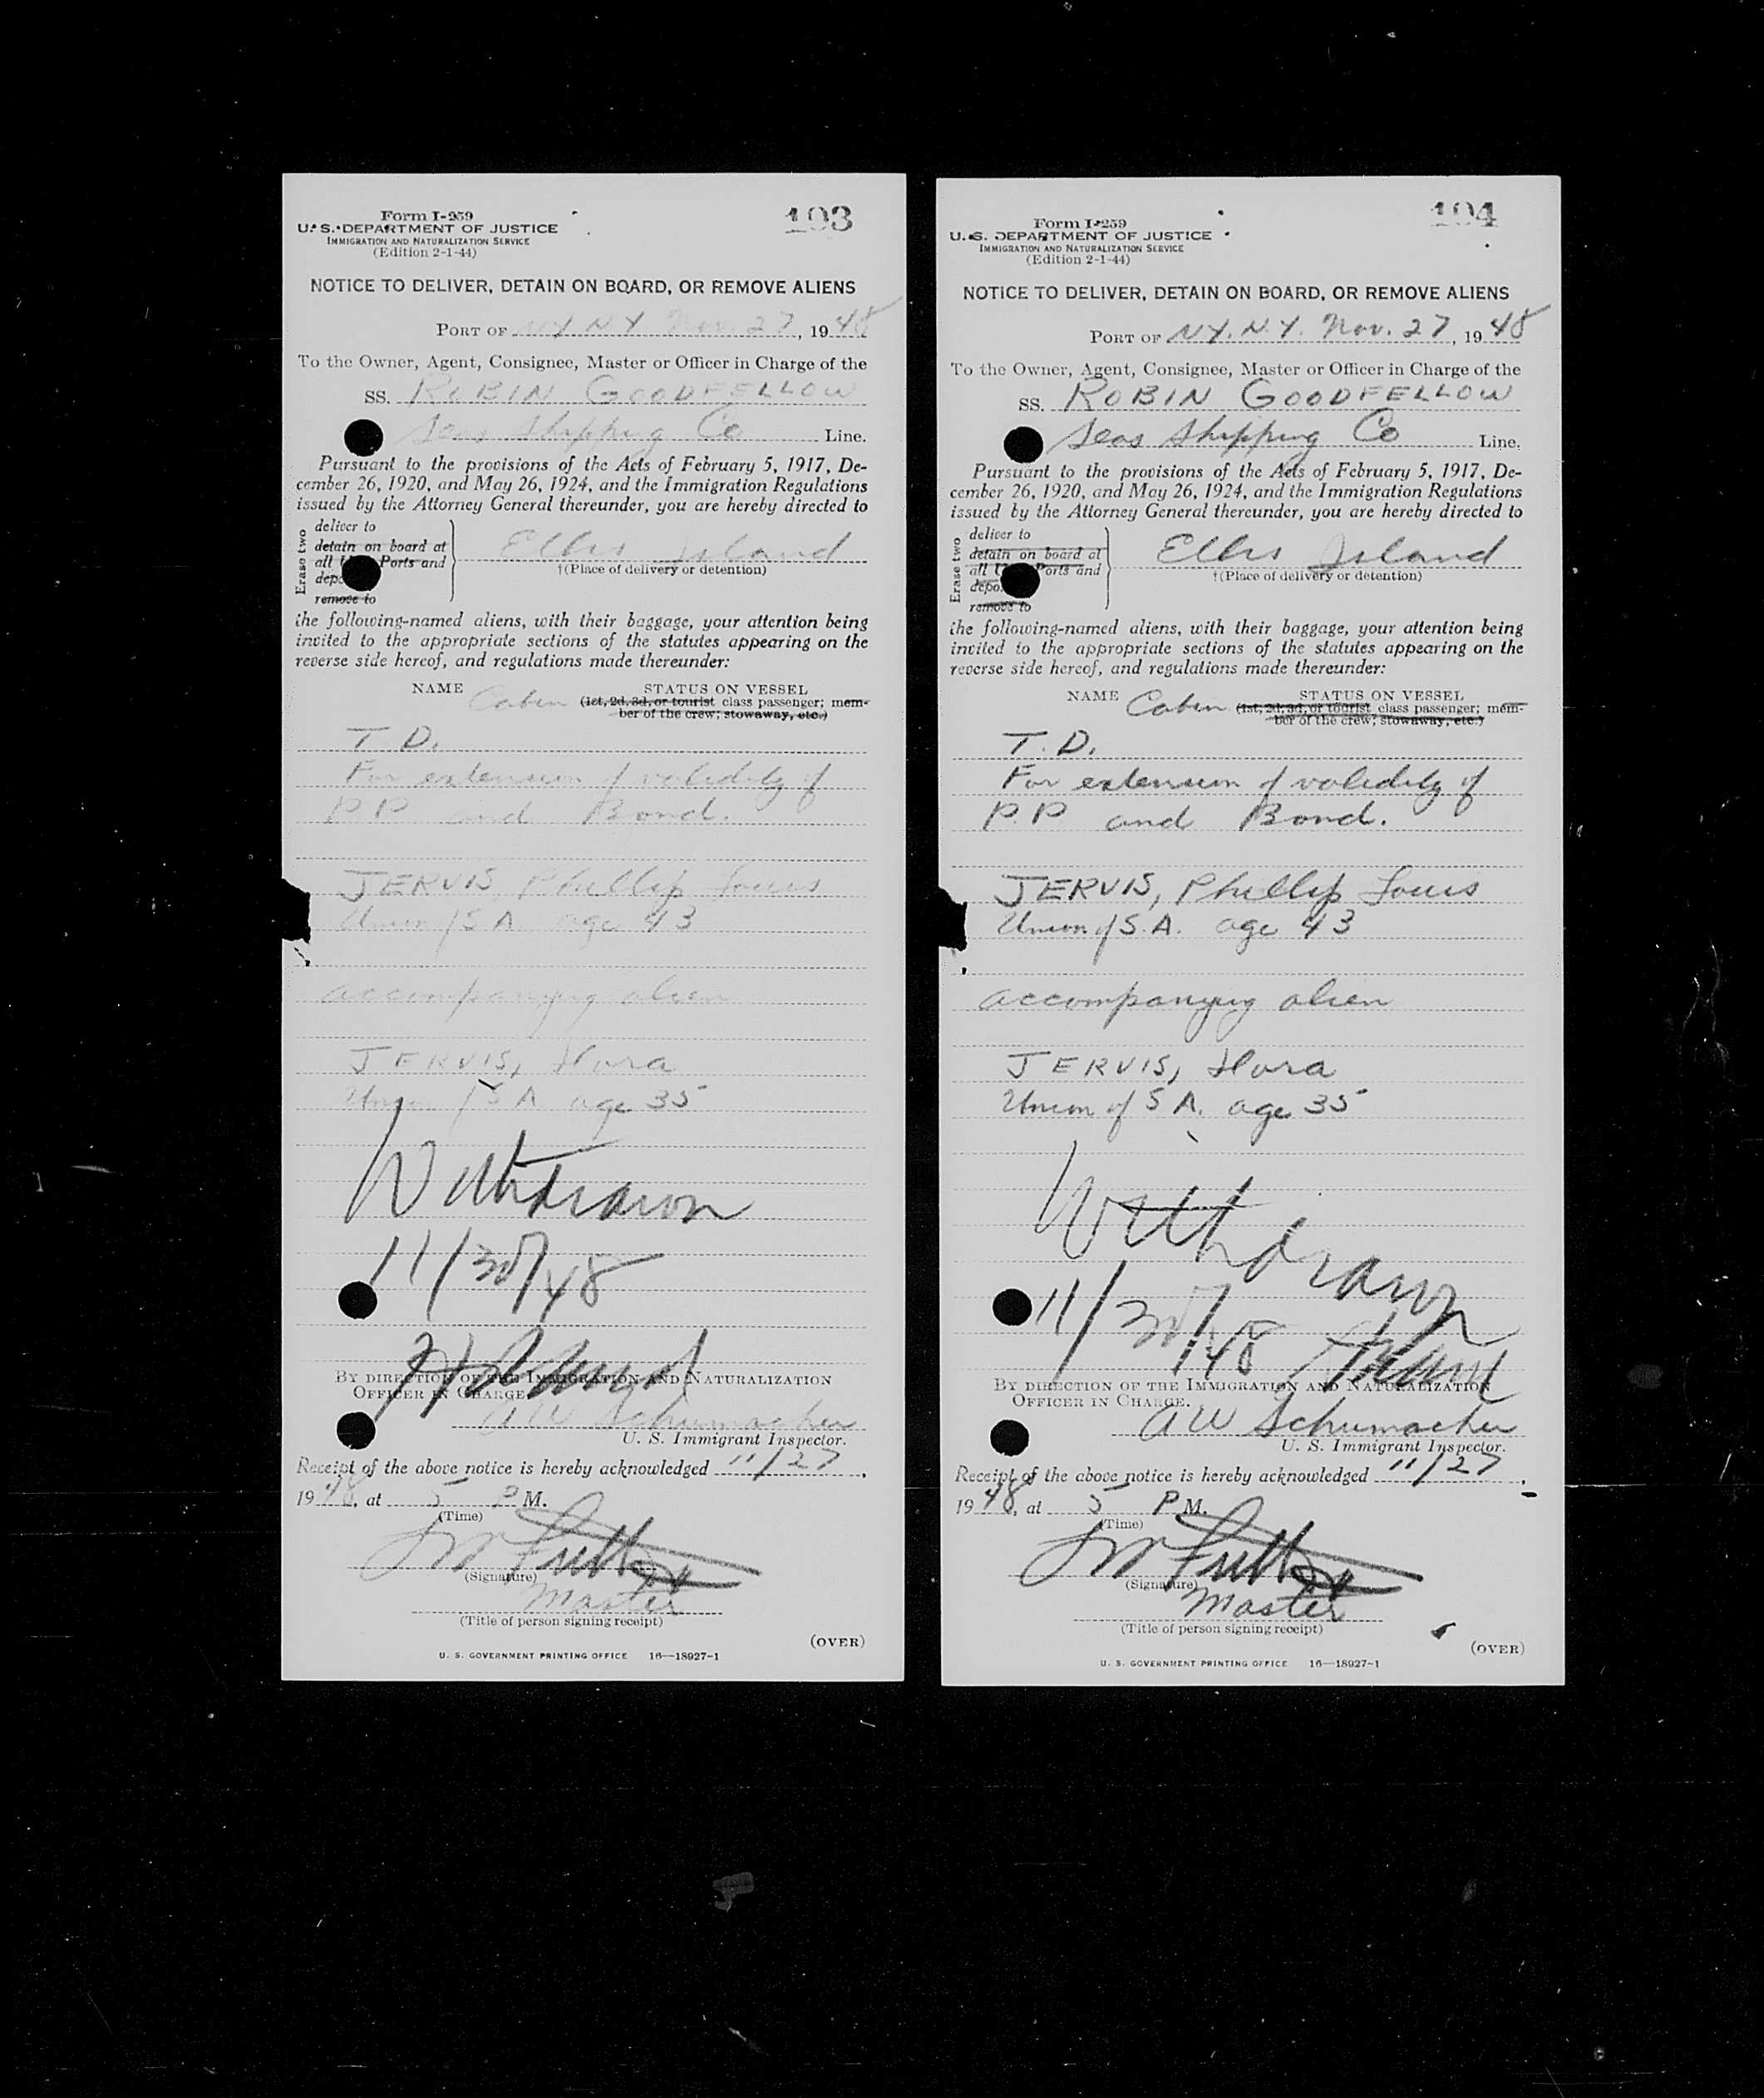 193
Form I-259
U. S. DEPARTMENT OF JUSTICE
IMMIGRATION AND NATURALIZATION SERVICE
(Edition 2-1-44)
NOTICE TO DELIVER, DETAIN ON BOARD, OR REMOVE ALIENS
PORT OF NY NY Nov. 27, 1948
To the Owner, Agent, Consignee, Master or Officer in Charge of the
SS. ROBIN GOODFELLOW
Seas Shipping Co Line.
Pursuant to the provisions of the Acts of February 5, 1917, De-
cember 26, 1920, and May 26, 1924, and the Immigration Regulations
issued by the Attorney General thereunder, you are hereby directed to
Erase two
deliver to
detain on board at
all Ports and
remove to
Ellis Island
†(Place of delivery or detention)
the following-named aliens, with their baggage, your attention being
invited to the appropriate sections of the statutes appearing on the
reverse side hereof, and regulations made thereunder:
NAME STATUS ON VESSEL
Cabin (1st, 2d, 3d, or tourist class passenger; mem-
ber of the crew; stowaway, etc.)
T. D.
For extension of validity of
P P and Bond.
JERVIS, Phillip Louis
Union of S A age 43
accompanying alien
JERVIS, Flora
Union of S A age 35
Withdrawn
11/30/48
BY DIRECTION OF THE IMMIGRATION AND NATURALIZATION
OFFICER IN CHARGE.
A W Schumacher
U. S. Immigrant Inspector.
Receipt of the above notice is hereby acknowledged 11/27,
1948, at 5 P M.
(Time)
(Signature)
Master
(Title of person signing receipt)
(OVER)
U. S. GOVERNMENT PRINTING OFFICE 16—18927-1
194
Form I-259
U. S. DEPARTMENT OF JUSTICE
IMMIGRATION AND NATURALIZATION SERVICE
(Edition 2-1-44)
NOTICE TO DELIVER, DETAIN ON BOARD, OR REMOVE ALIENS
PORT OF NY. N.Y. Nov. 27, 1948
To the Owner, Agent, Consignee, Master or Officer in Charge of the
SS. ROBIN GOODFELLOW
Seas Shipping Co Line.
Pursuant to the provisions of the Acts of February 5, 1917, De-
cember 26, 1920, and May 26, 1924, and the Immigration Regulations
issued by the Attorney General thereunder, you are hereby directed to
Erase two
deliver to
detain on board at
all Ports and
remove to
Ellis Island
†(Place of delivery or detention)
the following-named aliens, with their baggage, your attention being
invited to the appropriate sections of the statutes appearing on the
reverse side hereof, and regulations made thereunder:
NAME STATUS ON VESSEL
Cabin (1st, 2d, 3d, or tourist class passenger; mem-
ber of the crew; stowaway, etc.)
T. D.
For extension of validity of
P. P and Bond.
JERVIS, Phillip Louis
Union of S. A. age 43
accompanying alien
JERVIS, Flora
Union of S A. age 35
Withdrawn
11/30/48
BY DIRECTION OF THE IMMIGRATION AND NATURALIZATION
OFFICER IN CHARGE.
A W Schumacher
U. S. Immigrant Inspector.
Receipt of the above notice is hereby acknowledged 11/27,
1948, at 5 P M.
(Time)
(Signature)
Master
(Title of person signing receipt)
(OVER)
U. S. GOVERNMENT PRINTING OFFICE 16—18927-1